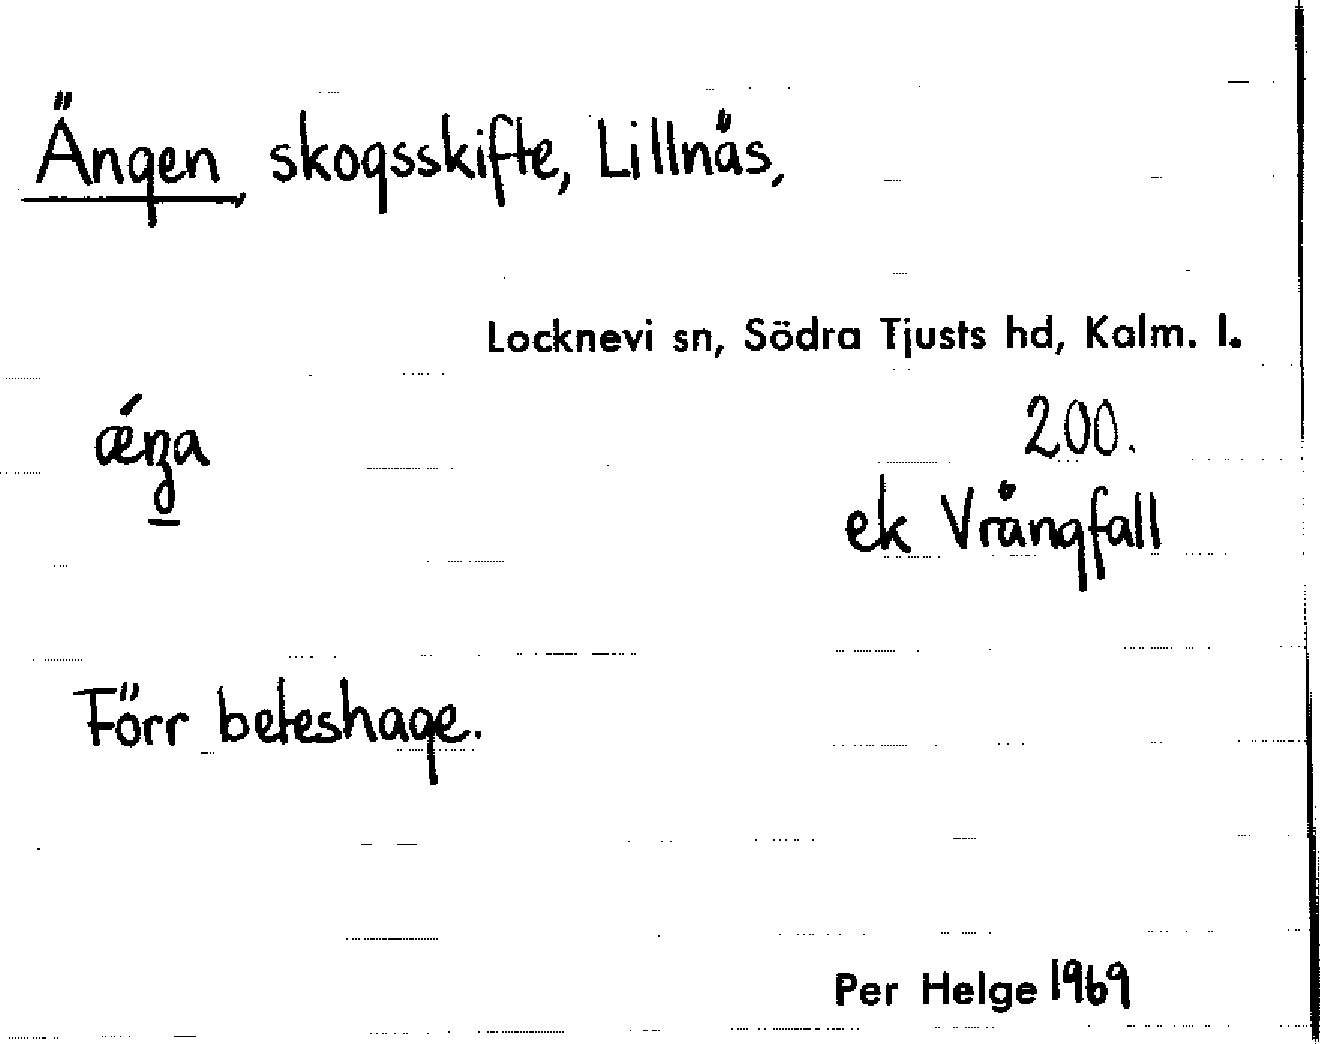 Ängen, skogsskifte, Lillnäs,
Locknevi sn, Södra Tjusts hd, Kalm. l.
200.
ek Vrångfall
Förr beteshage.
Per Helge 1969